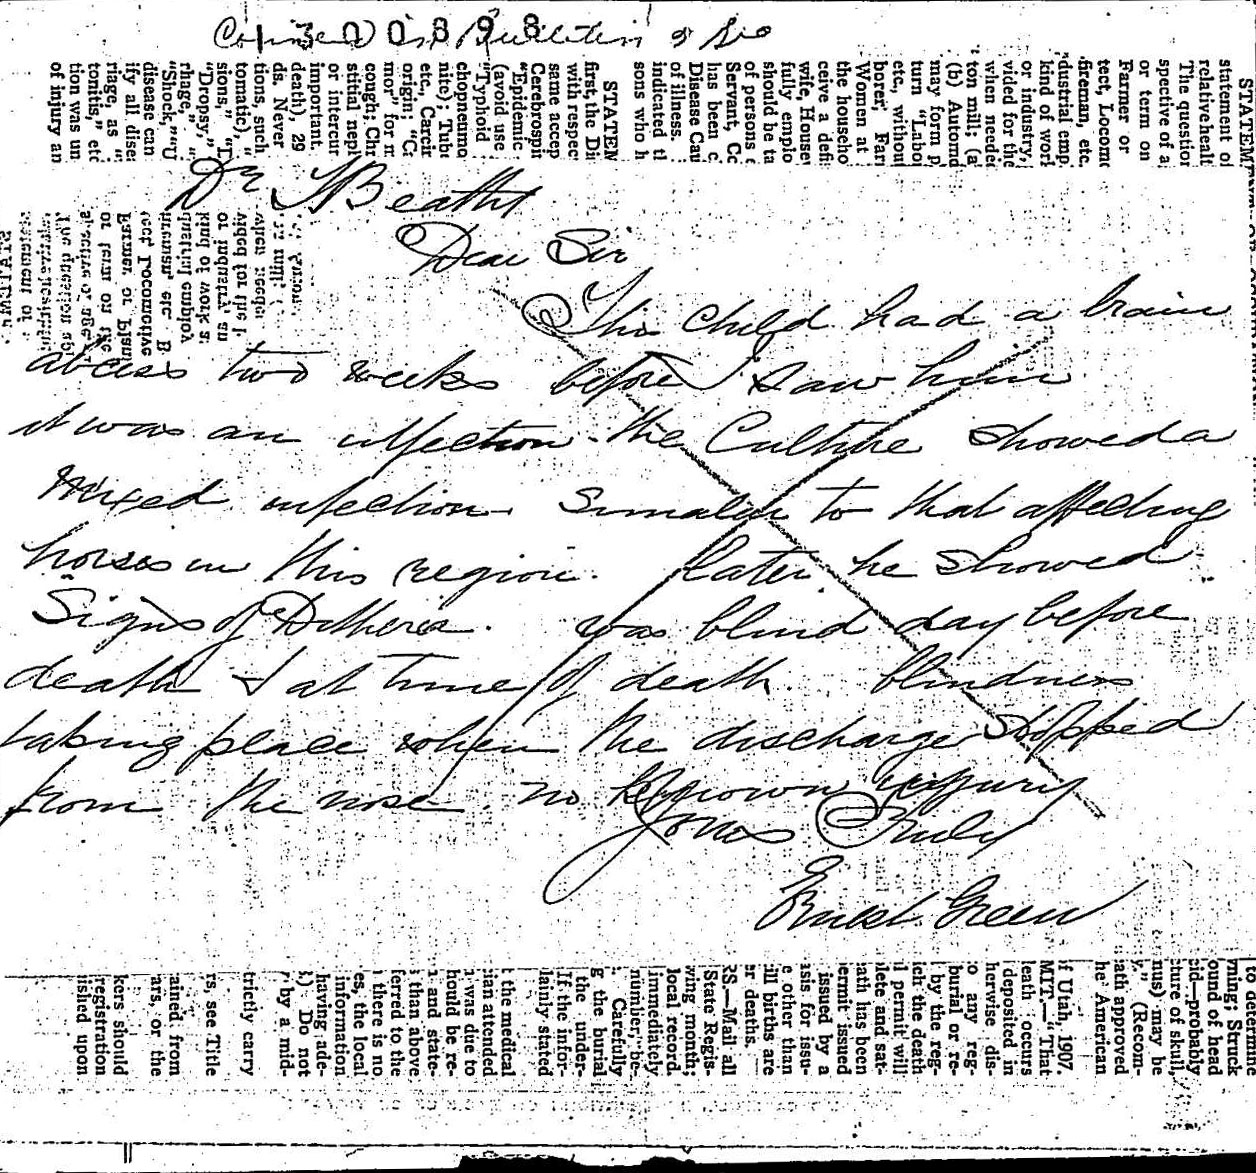 STATEM
statement of
relative healt
The question
spective of a
or term on
Farmer or
tect, Locomo
fireman, etc.
dustrial emp
kind of work
or industry,
vided for the
when needed
ton mill; (a
(b) Automo
may form p
turn "Labo
etc., without
borer, Farm
Women at
the househo
ceive a defi
wife, House
fully emplo
should be ta
Servant, Co
has been c
of persons
Disease Cau
of illness.
indicated th
sons who h
STATEM
first, the Di
with respec
same accep
Cerebrospi
"Epidemic
(avoid use
"Typhoid
chopneumo
nite); Tube
etc., Carcin
origin; "Ca
mor" for m
cough; Chr
stitial neph
or intercur
important.
death), 29
ds. Never
tions, such
tomatic),
sions,"
"Dropsy,"
rhage,"
"Shock," "U
disease can
ify all disea
riage, as
tonitis," etc
tion was un
of injury an
Dr Beatty
Dear Sir
This child had a brain
abcess two weeks before I saw him
it was an infection. the Culture showed a
mixed infection. Simalar to that affecting
horses in this region. later he showed
Signs of Ditheria. was blind day before
death & at time of death. blindness
taking place when the discharge stopped
from the nose. no known injury
Yours Truly
Ernest Green
to determine
wning; Struck
ound of head
cid—probably
cture of skull,
nus) may be
y." (Recom-
ath approved
he American
of Utah, 1907.
MIT.—"That
leath occurs
deposited in
herwise dis-
o any reg-
burial or re-
by the reg-
ich the death
l permit will
lete and sat-
ath has been
ermit issued
issued by a
asis for issu-
e other than
ill births are
r deaths.
RS.—Mail all
State Regis-
wing month;
local record.
immediately
number, be-
Carefully
g the burial
the under-
If the infor-
lainly stated
t the medical
ian attended
was due to
hould be re-
and state-
than above
ferred to the
there is no
es, the local
information
having ade-
Do not
by a mid-
trictly carry
rs, see Title
ained from
ars, or the
kers should
registration
ished upon